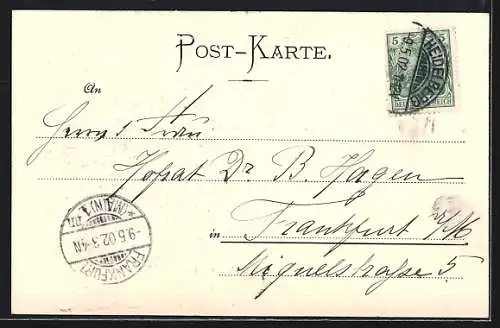 POST-KARTE.
5 5
HEIDELBERG
9.5.02.
REICH
An
Herrn & Frau
Hofrat Dr B. Hagen
in Frankfurt a/M
Miquelstrasse 5
FRANKFURT
-9.5.02.3-4N
* (MAIN) 1